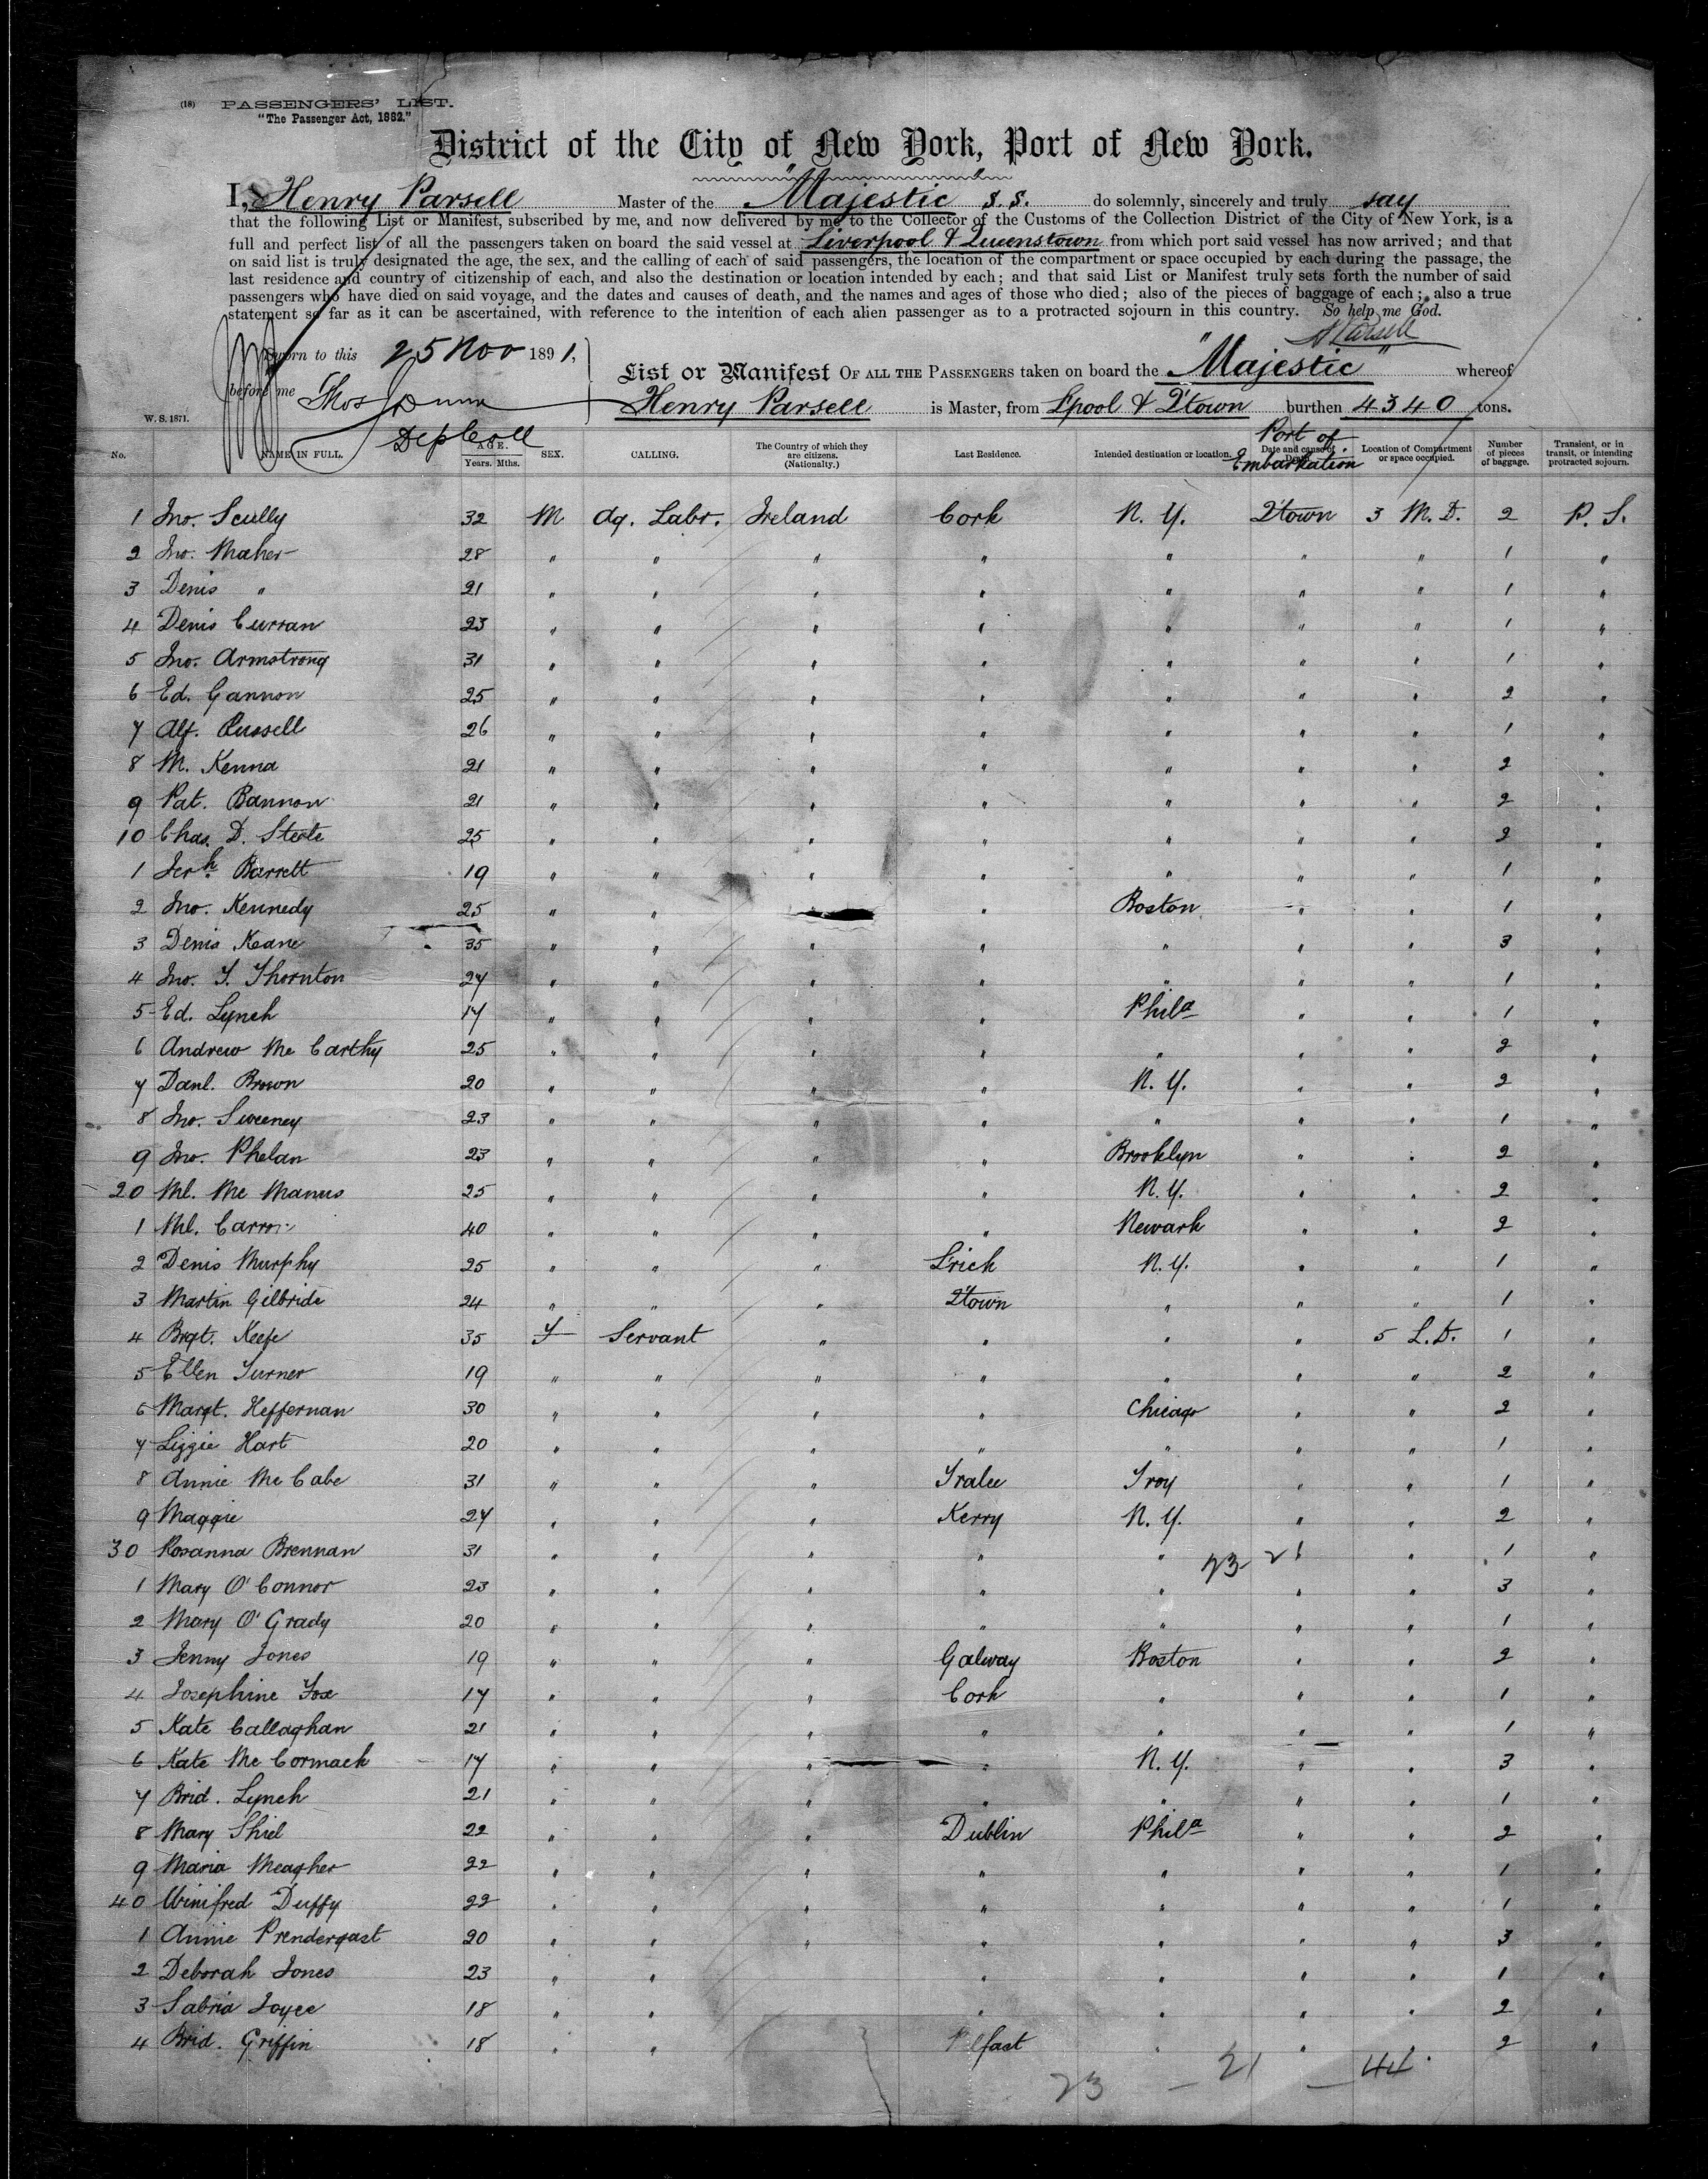 (18) PASSENGERS' LIST.
"The Passenger Act, 1882."
District of the City of New York, Port of New York.
I, Henry Parsell Master of the "Majestic" S.S. do solemnly, sincerely and truly say
that the following List or Manifest, subscribed by me, and now delivered by me to the Collector of the Customs of the Collection District of the City of New York, is a
full and perfect list of all the passengers taken on board the said vessel at Liverpool & Queenstown from which port said vessel has now arrived; and that
on said list is truly designated the age, the sex, and the calling of each of said passengers, the location of the compartment or space occupied by each during the passage, the
last residence and country of citizenship of each, and also the destination or location intended by each; and that said List or Manifest truly sets forth the number of said
passengers who have died on said voyage, and the dates and causes of death, and the names and ages of those who died; also of the pieces of baggage of each; also a true
statement so far as it can be ascertained, with reference to the intention of each alien passenger as to a protracted sojourn in this country. So help me God.
HParsell
Sworn to this 25 Nov 1891,
before me Thos Dunn
Dep Coll
List or Manifest OF ALL THE PASSENGERS taken on board the "Majestic" whereof
Henry Parsell is Master, from L'pool & Q'town burthen 4340 tons.
W. S. 1871.
No. NAME IN FULL. AGE. Years. Mths. SEX. CALLING. The Country of which they are citizens. (Nationality.) Last Residence. Intended destination or location. Date and cause of Death. Port of Embarkation Location of Compartment or space occupied. Number of pieces of baggage. Transient, or in transit, or intending protracted sojourn.
1 Jno. Scully 32 M Ag. Labr. Ireland Cork N. Y. Q'town 3 M. D. 2 P. S.
2 Jno. Maher 28 " " " " " " " 1 "
3 Denis " 21 " " " " " " " 1 "
4 Denis Curran 23 " " " " " " " 1 "
5 Jno. Armstrong 31 " " " " " " " 1 "
6 Ed. Gannon 25 " " " " " " " 2 "
7 Alf. Russell 26 " " " " " " " 1 "
8 M. Kenna 21 " " " " " " " 2 "
9 Pat. Bannon 21 " " " " " " " 2 "
10 Chas. D. Steele 25 " " " " " " " 2 "
1 Jerh. Barrett 19 " " " " " " " 1 "
2 Jno. Kennedy 25 " " " Boston " " 1 "
3 Denis Keane 35 " " " " " " " 3 "
4 Jno. T. Thornton 27 " " " " " " " 1 "
5 Ed. Lynch 17 " " " " Phila " " 1 "
6 Andrew Mc Carthy 25 " " " " " " " 2 "
7 Danl. Brown 20 " " " " N. Y. " " 2 "
8 Jno. Sweeney 23 " " " " " " " 1 "
9 Jno. Phelan 23 " " " " Brooklyn " " 2 "
20 Ml. Mc Manus 25 " " " " N. Y. " " 2 "
1 Ml. 40 " " " " Newark " " 2 "
2 Denis Murphy 25 " " " L'rick N. Y. " " 1 "
3 Martin Gilbride 24 " " " Q'town " " " 1 "
4 Brgt. Keefe 35 F Servant " " " " 5 L. D. 1 "
5 Ellen Turner 19 " " " " " " " 2 "
6 Margt. Heffernan 30 " " " " Chicago " " 2 "
7 Lizzie Hart 20 " " " " " " " 1 "
8 Annie Mc Cabe 31 " " " Tralee Troy " " 1 "
9 Maggie 27 " " " Kerry N. Y. " " 2 "
30 Rosanna Brennan 31 " " " " " " " 1 "
23 21
1 Mary O'Connor 23 " " " " " " " 3 "
2 Mary O'Grady 20 " " " " " " " 1 "
3 Jenny Jones 19 " " " Galway Boston " " 2 "
4 Josephine Fox 17 " " " Cork " " " 1 "
5 Kate Callaghan 21 " " " " " " " 1 "
6 Kate Mc Cormack 17 " " " " N. Y. " " 3 "
7 Brid. Lynch 21 " " " " " " " 1 "
8 Mary Shiel 22 " " " Dublin Phila " " 2 "
9 Maria Meagher 22 " " " " " " " 1 "
40 Winifred Duffy 22 " " " " " " " 1 "
1 Annie Prendergast 20 " " " " " " " 3 "
2 Deborah Jones 23 " " " " " " 1 "
3 Sabria Joyce 18 " " " " " " 2 "
4 Brid. Griffin 18 " " " " " 2 "
23 — 21 — 44